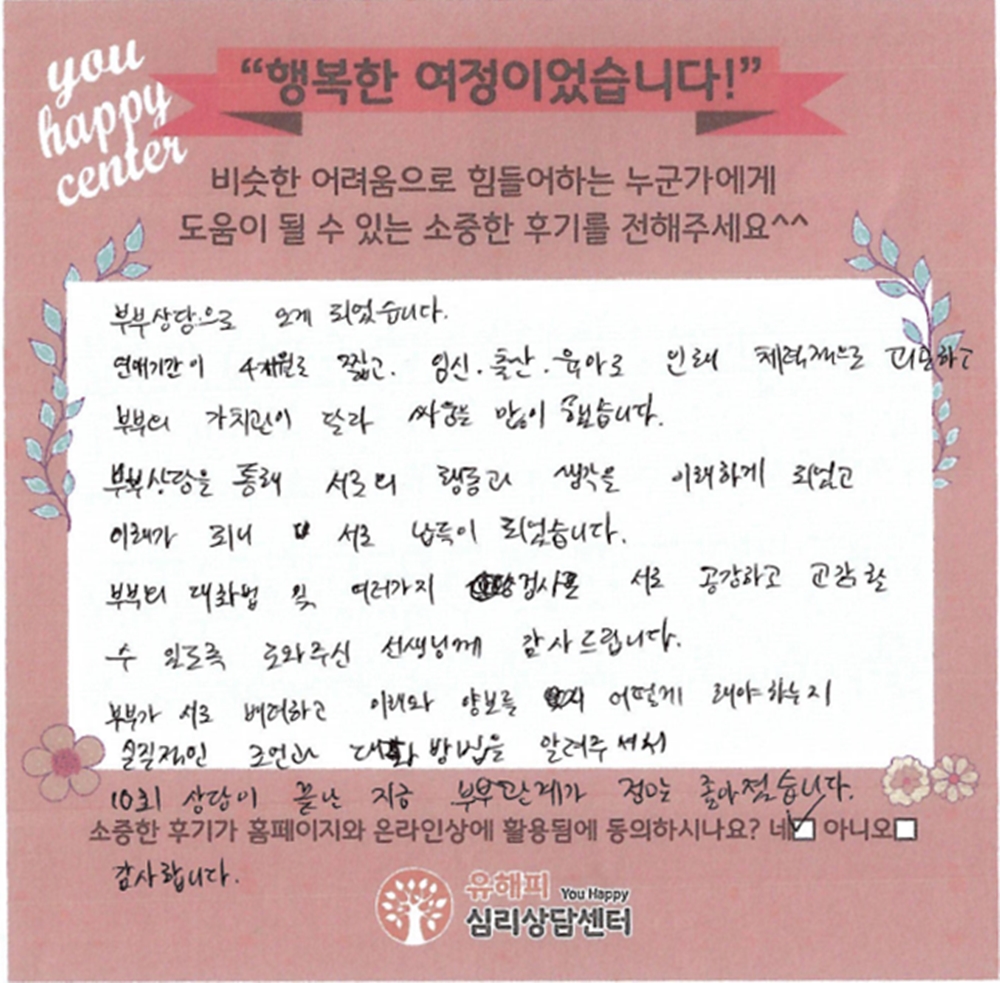 you
happy
center
“행복한 여정이었습니다!”
비슷한 어려움으로 힘들어하는 누군가에게
도움이 될 수 있는 소중한 후기를 전해주세요^^
부부상담으로 오게 되었습니다.
연애기간이 4개월로 짧고. 임신. 출산. 육아로 인해 체력적으로 고
부부의 가치관이 달라 싸움을 많이 했습니다.
부부상담을 통해 서로의 행동과 생각을 이해하게 되었고
이해가 되니 서로 납득이 되었습니다.
부부의 대화법 및 여러가지 검사로 서로 공감하고 교감할
수 있도록 도와주신 선생님께 감사드립니다.
부부가 서로 배려하고 이해와 양보를 어떻게 해야하는지
실질적인 조언과 대화 방법을 알려주셔서
10회 상담이 끝난 지금 부부관계가 정말 좋아졌습니다.
소중한 후기가 홈페이지와 온라인상에 활용됨에 동의하시나요? 네 아니오
감사합니다.
유해피 You Happy
심리상담센터